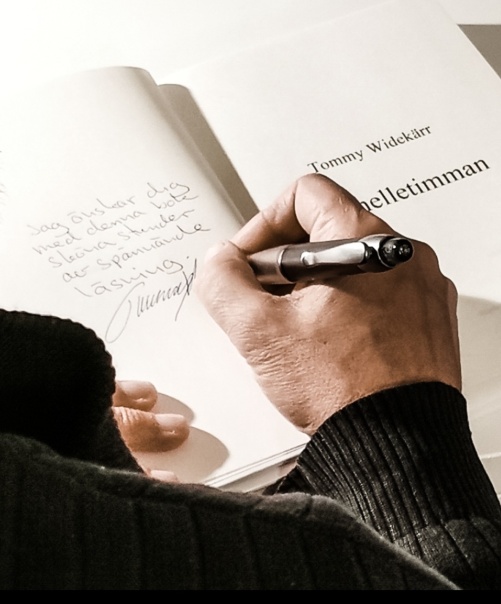 Jag önskar dig
med denna bok
sköna stunder
av spännande
läsning.
Tommy Widekärr
elletimman